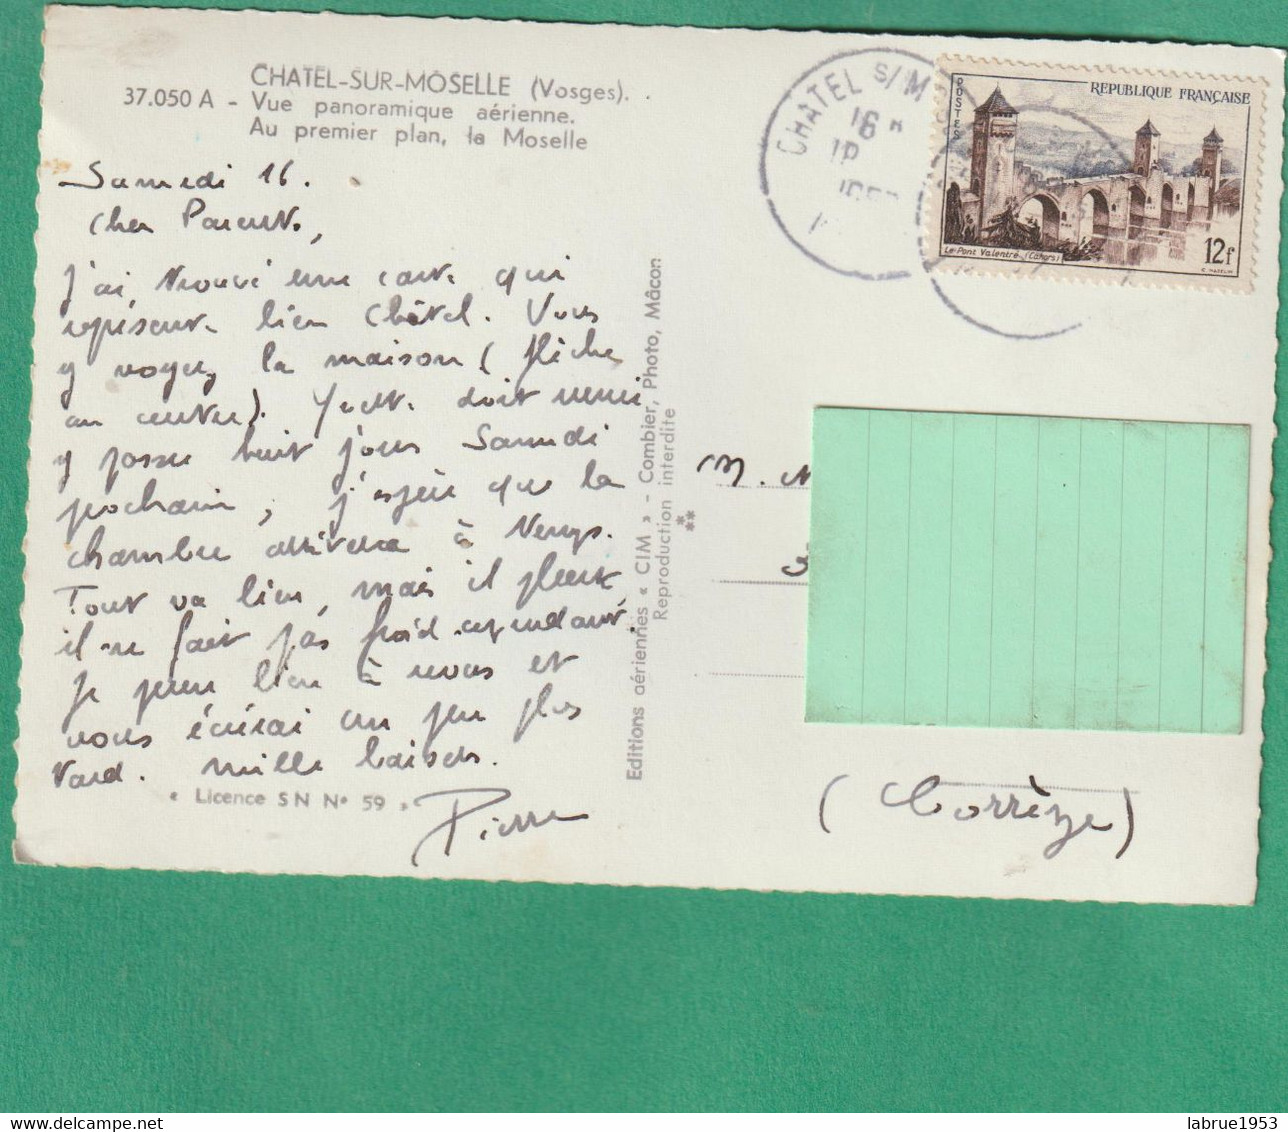 CHATEL-SUR-MOSELLE (Vosges).
37.050 A - Vue panoramique aérienne.
Au premier plan, la Moselle
Samedi 16.
Cher Parents,
j'ai trouvé une carte qui
représente bien Châtel. Vous
y voyez la maison (flèche
au centre). Yvette doit venir
y passer huit jours Samedi
prochain, j'espère que la
chambre arrivera à temps.
Tout va bien, mais il pleut,
il ne fait pas froid cependant.
Je pense bien à vous et
vous écrirai un peu plus
tard. mille baisers.
Pierre
« Licence SN N° 59 »
Editions aériennes « CIM » - Combier, Photo, Mâcon
Reproduction interdite
CHATEL s/ M
16 H
POSTES
REPUBLIQUE FRANÇAISE
Le Pont Valentré (Cahors)
12f
M.
(Corrèze)
labrue1953